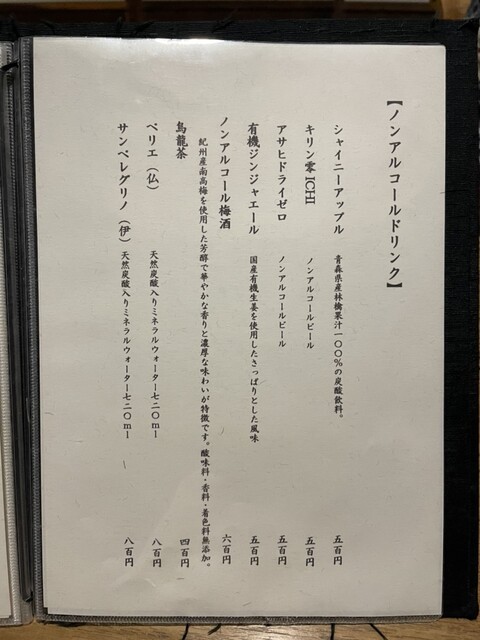 【ノンアルコールドリンク】
シャイニーアップル 青森県産林檎果汁一〇〇%の炭酸飲料。 五百円
キリン零ICHI ノンアルコールビール 五百円
アサヒドライゼロ ノンアルコールビール 五百円
有機ジンジャエール 国産有機生姜を使用したさっぱりとした風味 五百円
ノンアルコール梅酒 六百円
紀州産南高梅を使用した芳醇で華やかな香りと濃厚な味わいが特徴です。酸味料・香料・着色料無添加。
烏龍茶 四百円
ペリエ（仏） 天然炭酸入りミネラルウォーター七二〇ml 八百円
サンペレグリノ（伊） 天然炭酸入りミネラルウォーター七二〇ml 八百円